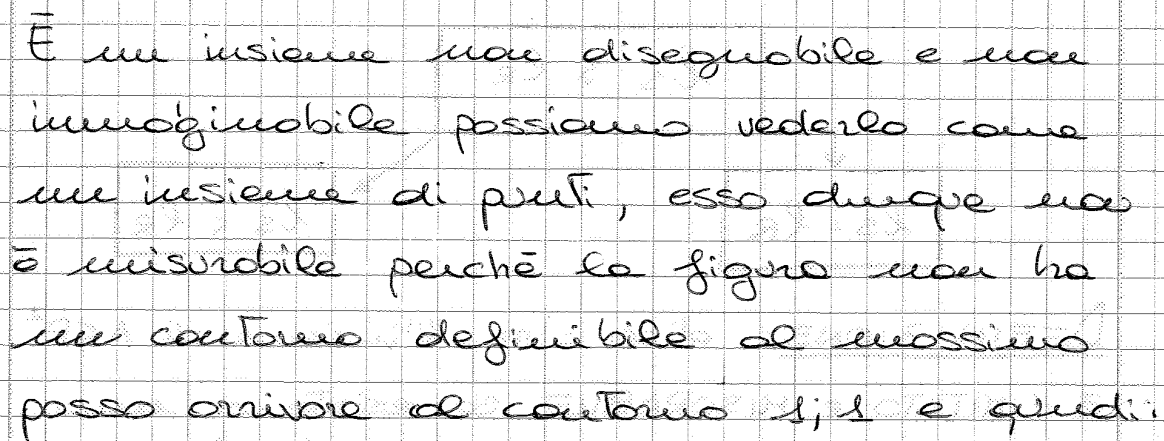 É un insieme non disegnabile e non
immaginabile possiamo vederlo come
un insieme di punti, esso dunque non
é misurabile perché la figura non ha
un contorno definibile al massimo
posso arrivare al contorno 1; 1 e quindi: